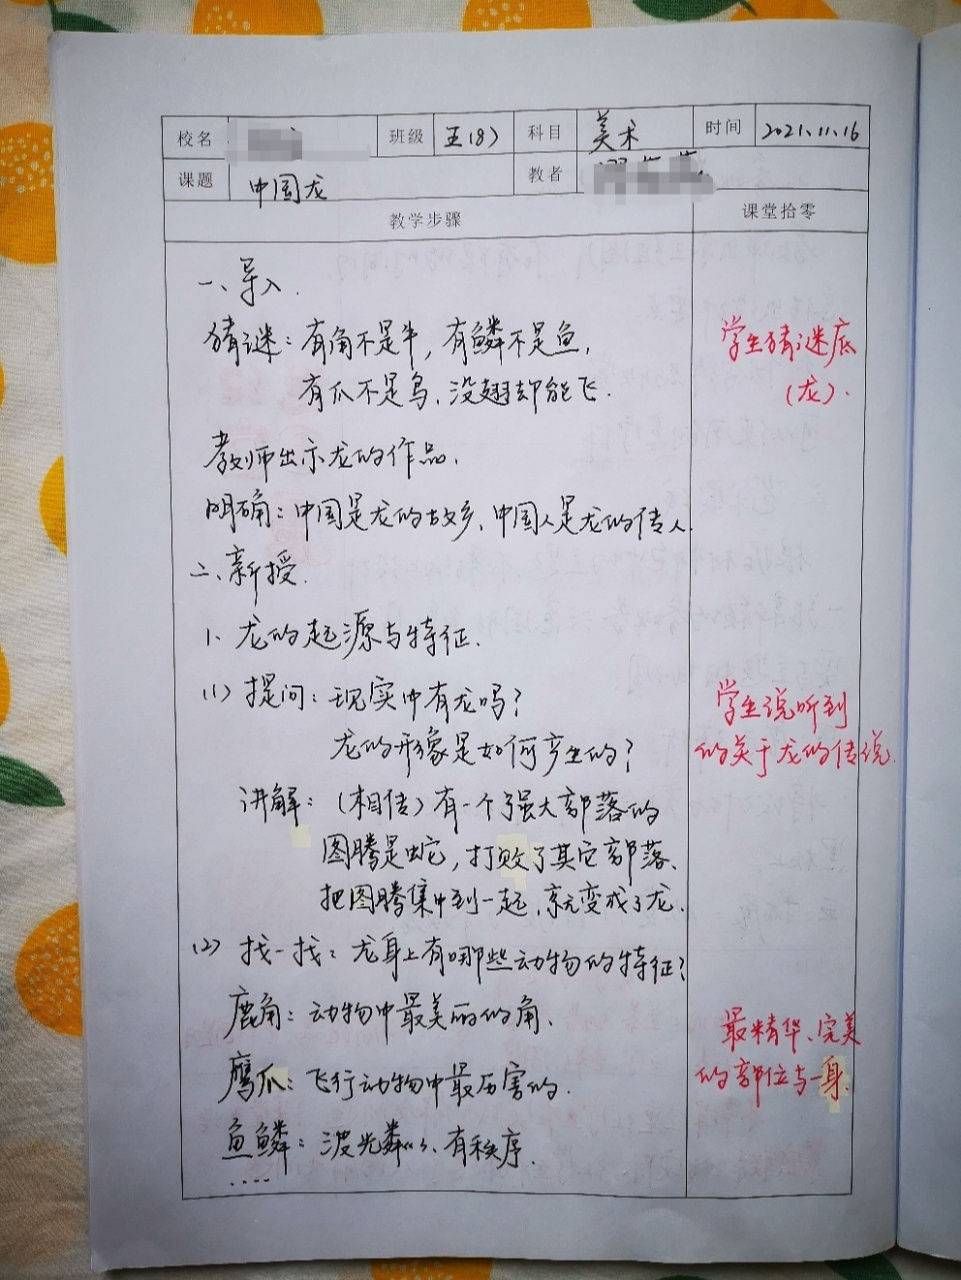 校名 班级 五(8) 科目 美术 时间 2021.11.16
课题 中国龙 教者
教学步骤 课堂拾零
一、导入.
猜谜：有角不是牛，有鳞不是鱼，
有爪不是鸟、没翅却能飞.
学生猜谜底
(龙).
教师出示龙的作品.
明确：中国是龙的故乡、中国人是龙的传人
二、新授.
1、龙的起源与特征.
(1) 提问：现实中有龙吗？
龙的形像是如何产生的？
学生说听到
的关于龙的传说.
讲解：(相传)有一个强大部落的
图腾是蛇，打败了其它部落、
把图腾集中到一起、就变成了龙.
(2) 找一找：龙身上有哪些动物的特征？
鹿角：动物中最美丽的角.
鹰爪：飞行动物中最历害的.
鱼鳞：波光粦〃、有秩序.
....
最精华、完美
的部位与一身.